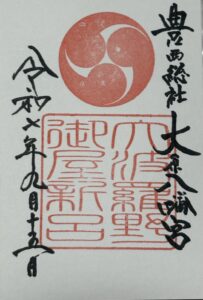 豊西総社
大原八幡宮
大波羅野
御屋新邑
令和七年九月十五日